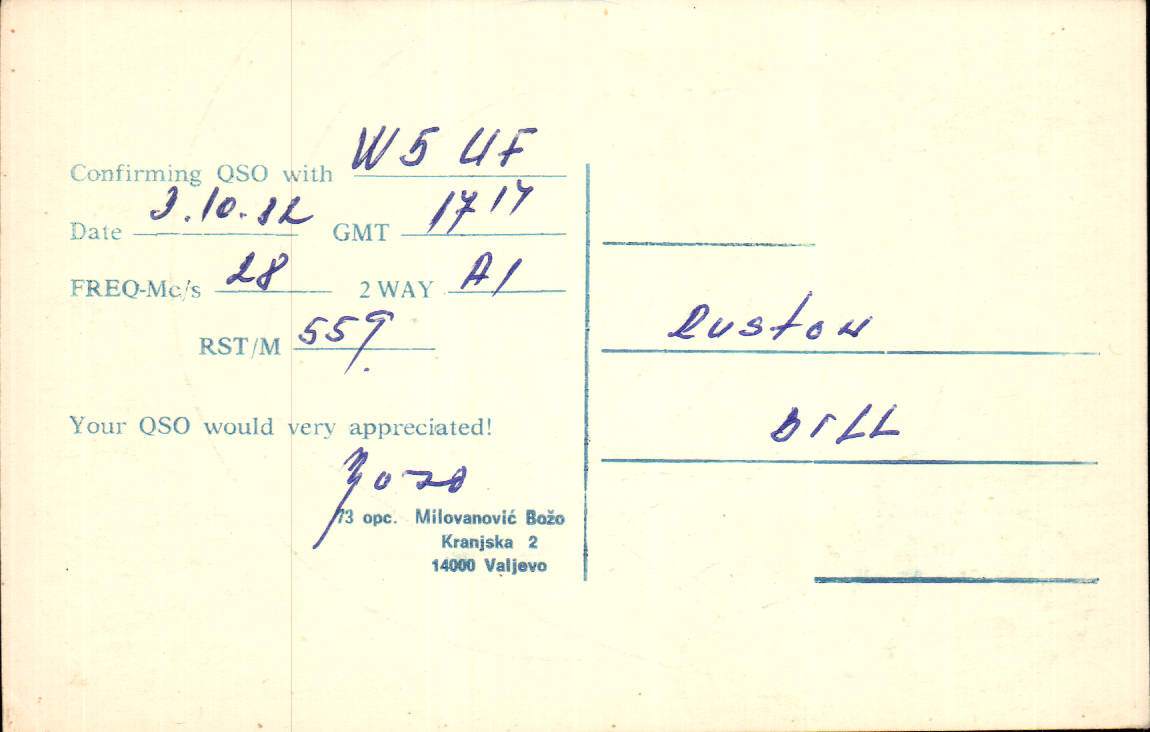 Confirming QSO with W5UF
Date 3.10.82 GMT 1717
FREQ-Mc/s 28 2 WAY A1
RST/M 559
Your QSO would very appreciated!
73 opc. Milovanović Božo
Kranjska 2
14000 Valjevo
Ruston
BILL